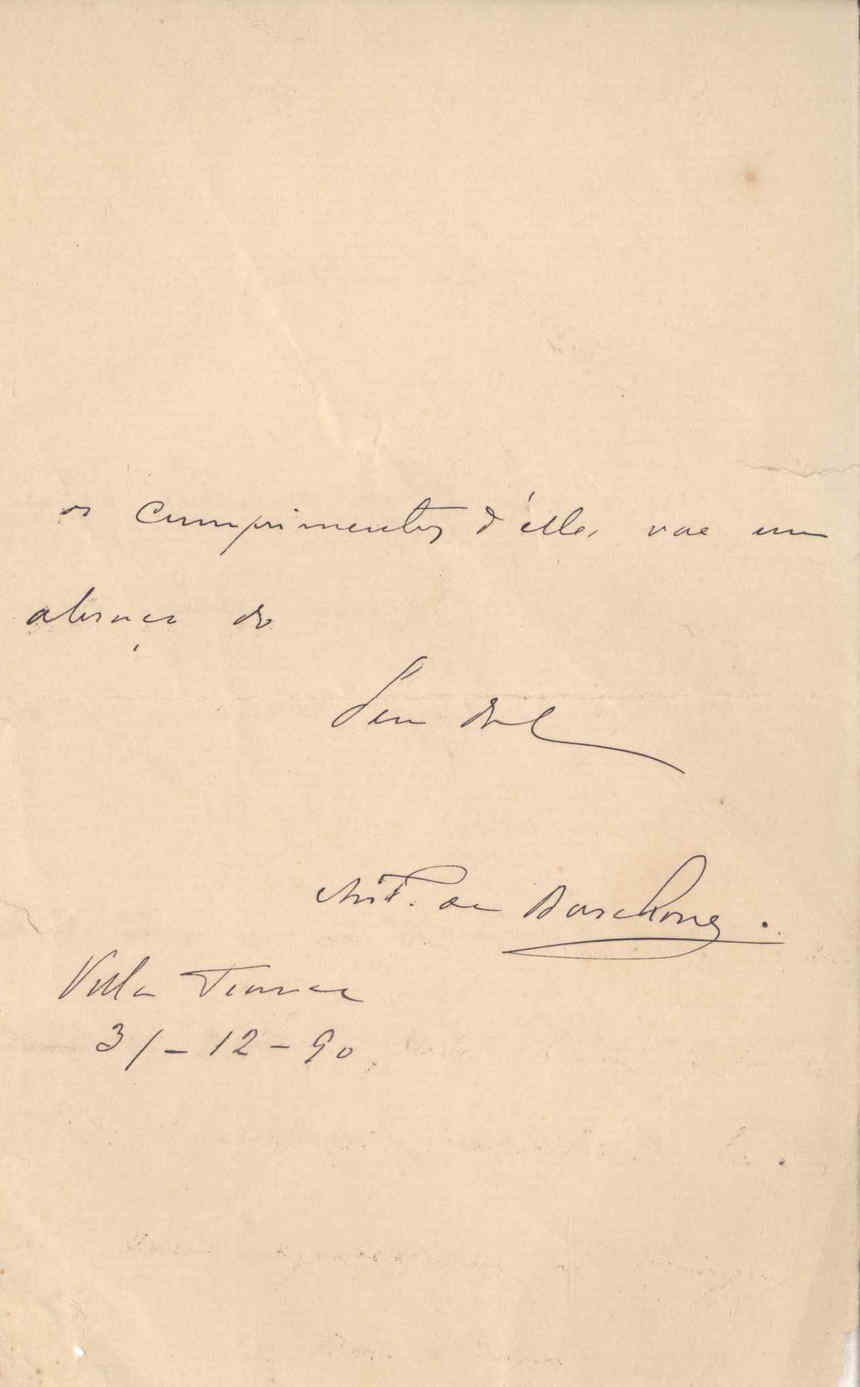 os cumprimentos d'ella, vae um
abraço do
Seu
Ant. de
Villa Franca
31-12-90